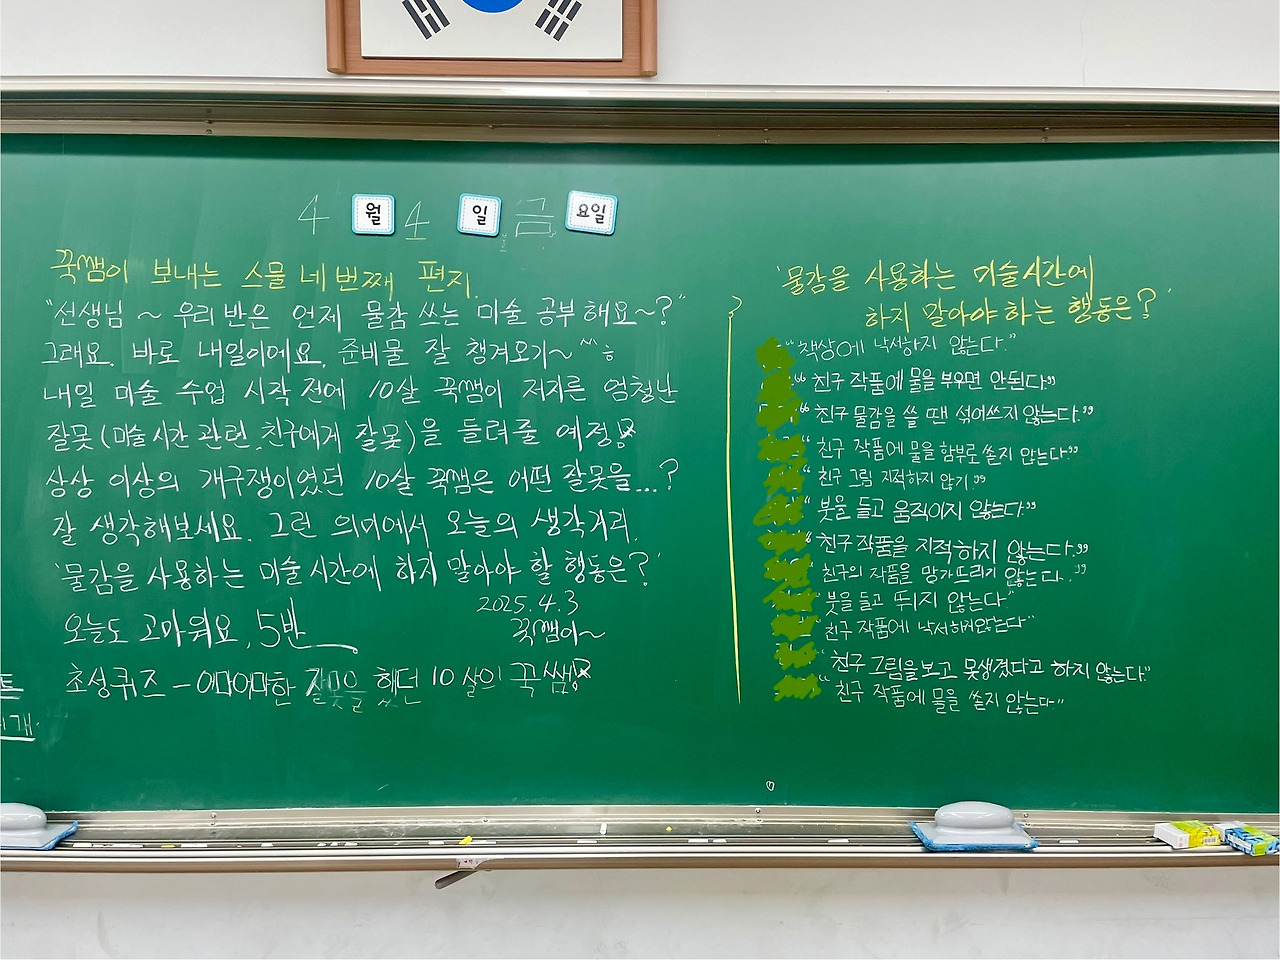 4 월 4 일 금 요일
꾹쌤이 보내는 스물 네 번째 편지.
"선생님 ~ 우리 반은 언제 물감 쓰는 미술 공부 해요~?"
그래요. 바로 내일이에요. 준비물 잘 챙겨오기~^^ㅎ
내일 미술 수업 시작 전에 10살 꾹쌤이 저지른 엄청난
잘못(미술시간 관련, 친구에게 잘못)을 들려줄 예정
상상 이상의 개구쟁이였던 10살 꾹쌤은 어떤 잘못을...?
잘 생각해보세요. 그런 의미에서 오늘의 생각거리.
'물감을 사용하는 미술시간에 하지 말아야 할 행동은?'
2025.4.3
오늘도 고마워요, 5반
꾹쌤이~
초성퀴즈 - 어마어마한 잘못을 했던 10살의 꾹쌤
'물감을 사용하는 미술시간에
하지 말아야 하는 행동은?'
"책상에 낙서하지 않는다."
"친구 작품에 물을 부우면 안된다"
"친구 물감을 쓸 땐 섞어쓰지 않는다."
"친구 작품에 물을 함부로 쏟지 않는다"
"친구 그림 지적하지 않기"
"붓을 들고 움직이지 않는다"
"친구 작품을 지적하지 않는다."
"친구의 작품을 망가뜨리기 않는다."
"붓을 들고 뛰지 않는다"
"친구 작품에 낙서하지않는다"
"친구 그림을 보고 못생겼다고 하지 않는다"
"친구 작품에 물을 쏟지 않는다"